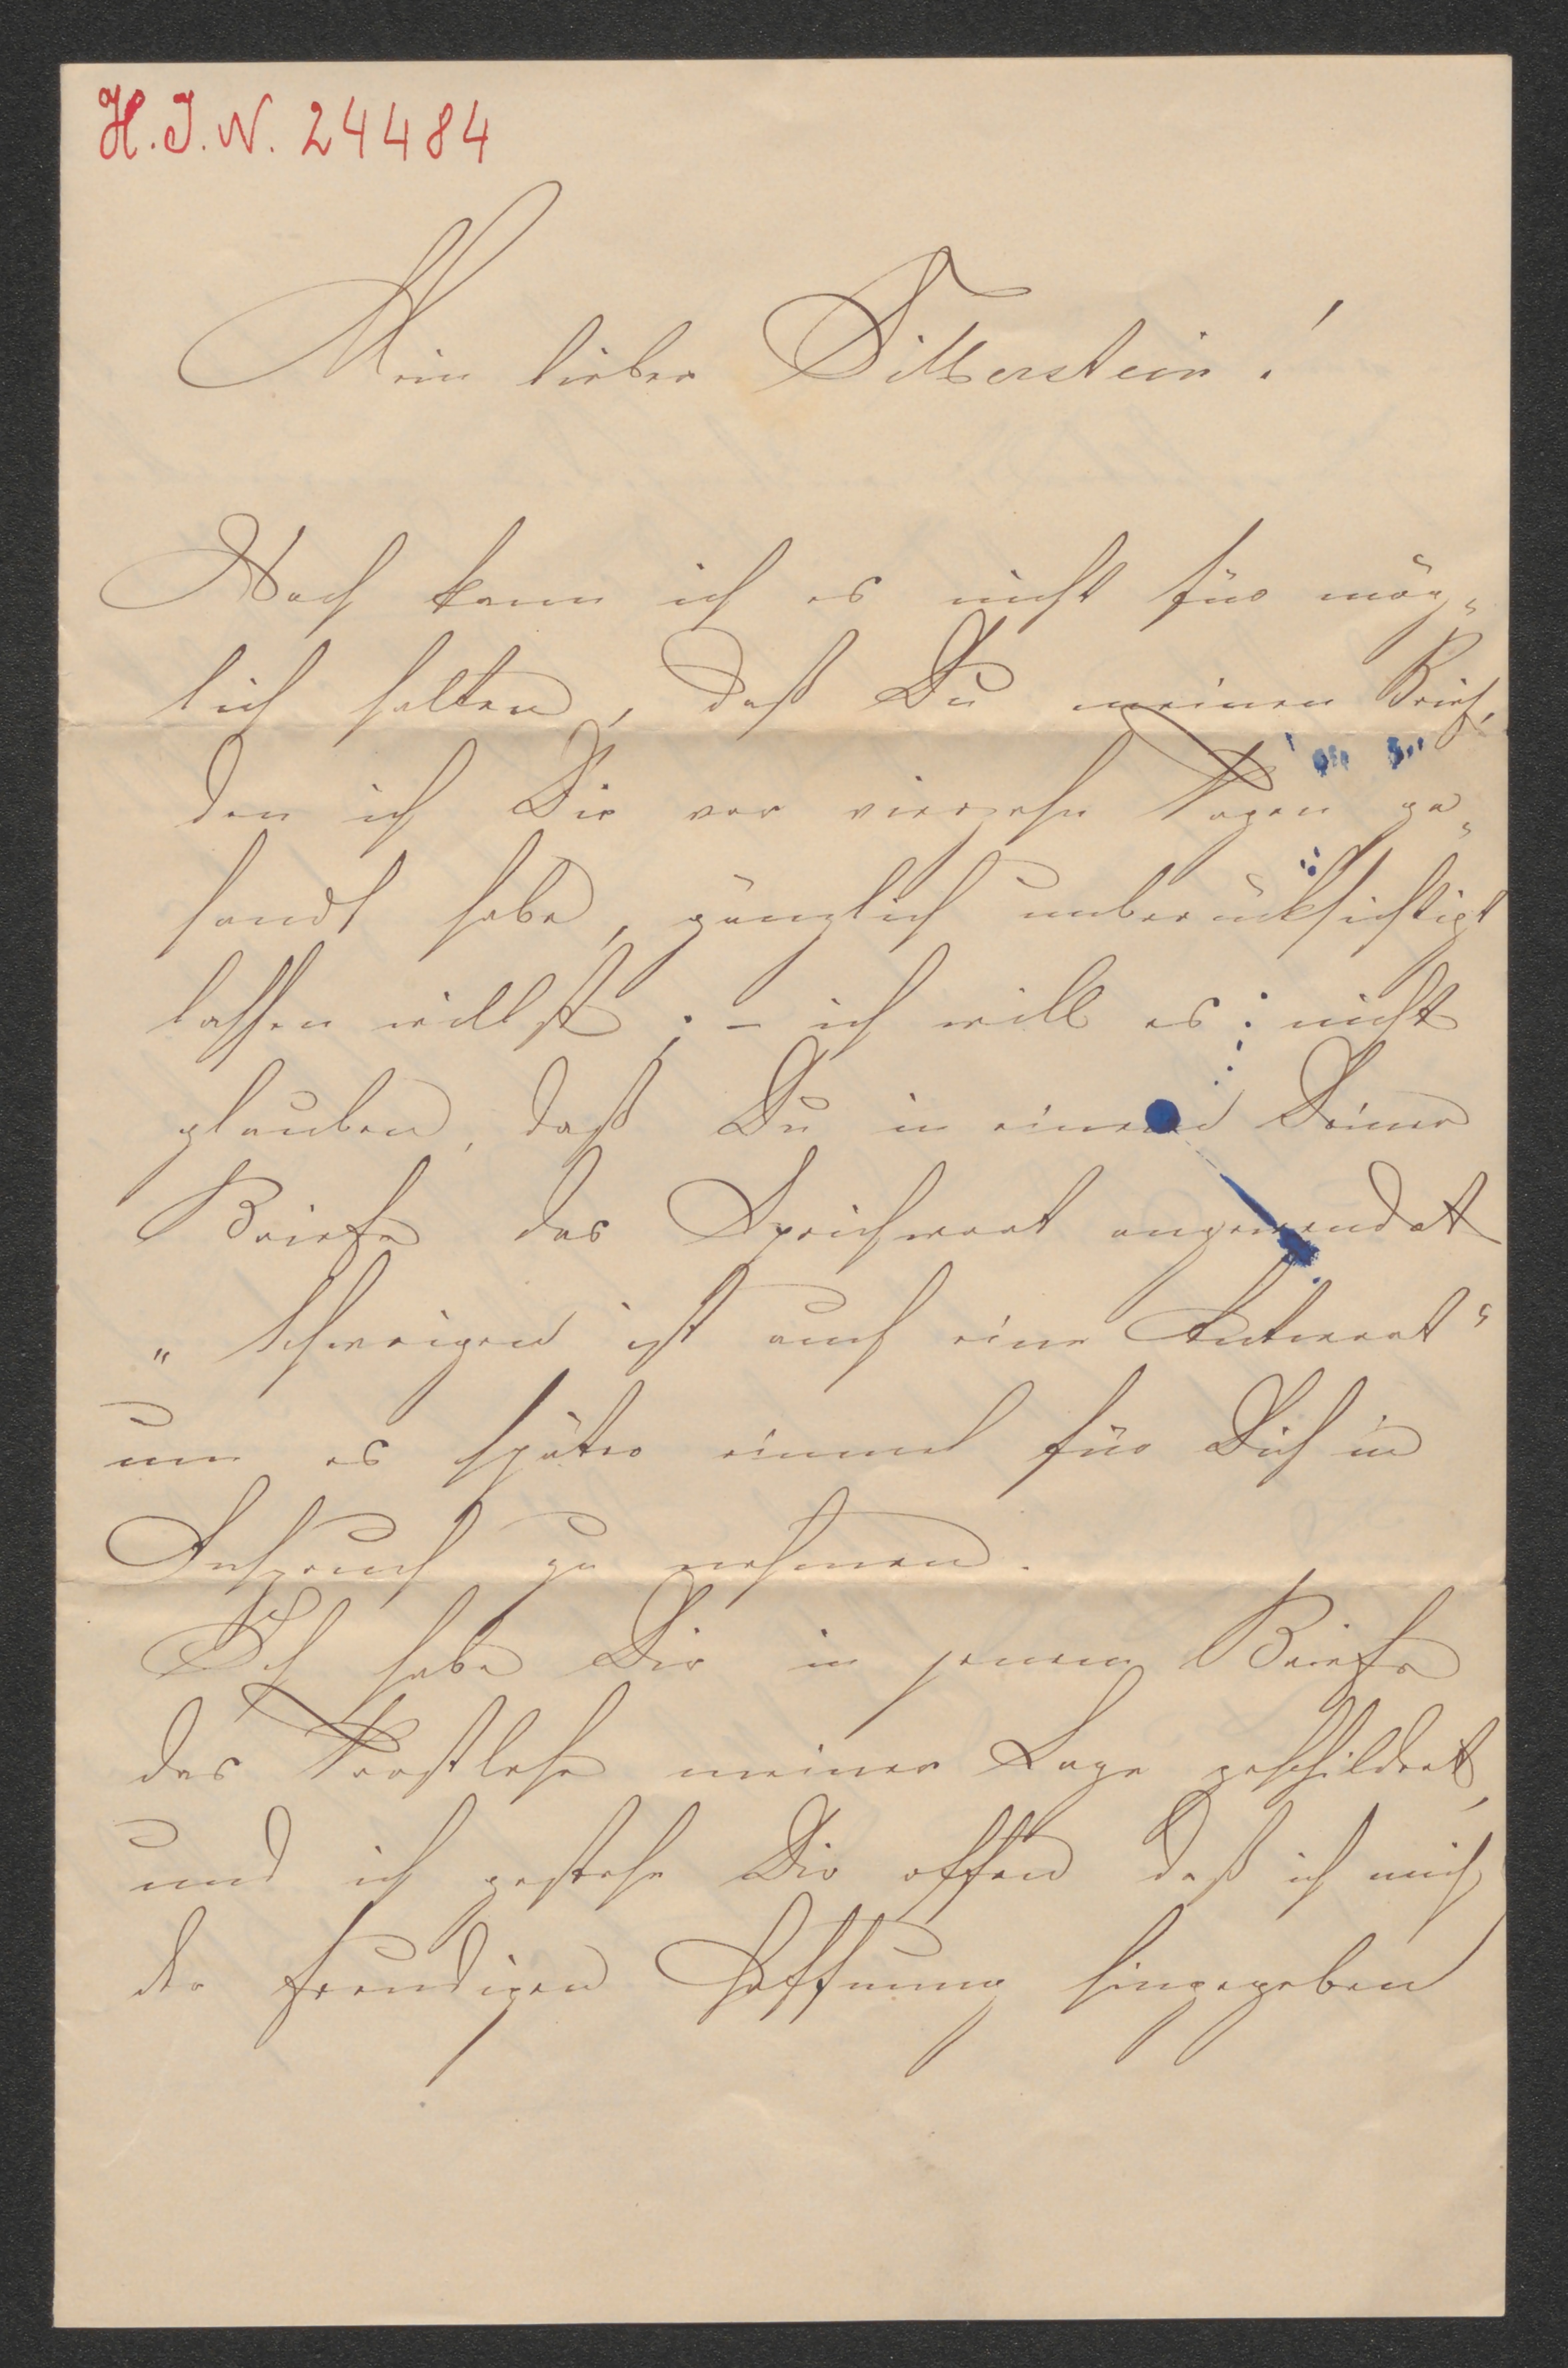 H. J. N. 24484
Mein lieber Silberstein!
Noch kann ich es nicht für mög„
lich halten, daß Du meinen Brief,
den ich Dir vor vierzehn Tagen ge„
sandt habe, gänzlich unberücksichtigt
lassen willst; – ich will es nicht
glauben, daß Du in einem Deiner
Briefe das Sprichwort angewendet
„Schweigen ist auch eine Antwort“
um es später einmal für Dich in
Anspruch zu nehmen.
Ich habe Dir in jenem Briefe
das Trostlose meiner Lage geschildert,
und ich gestehe Dir offen daß ich mich
der freudigen Hoffnung hingegeben